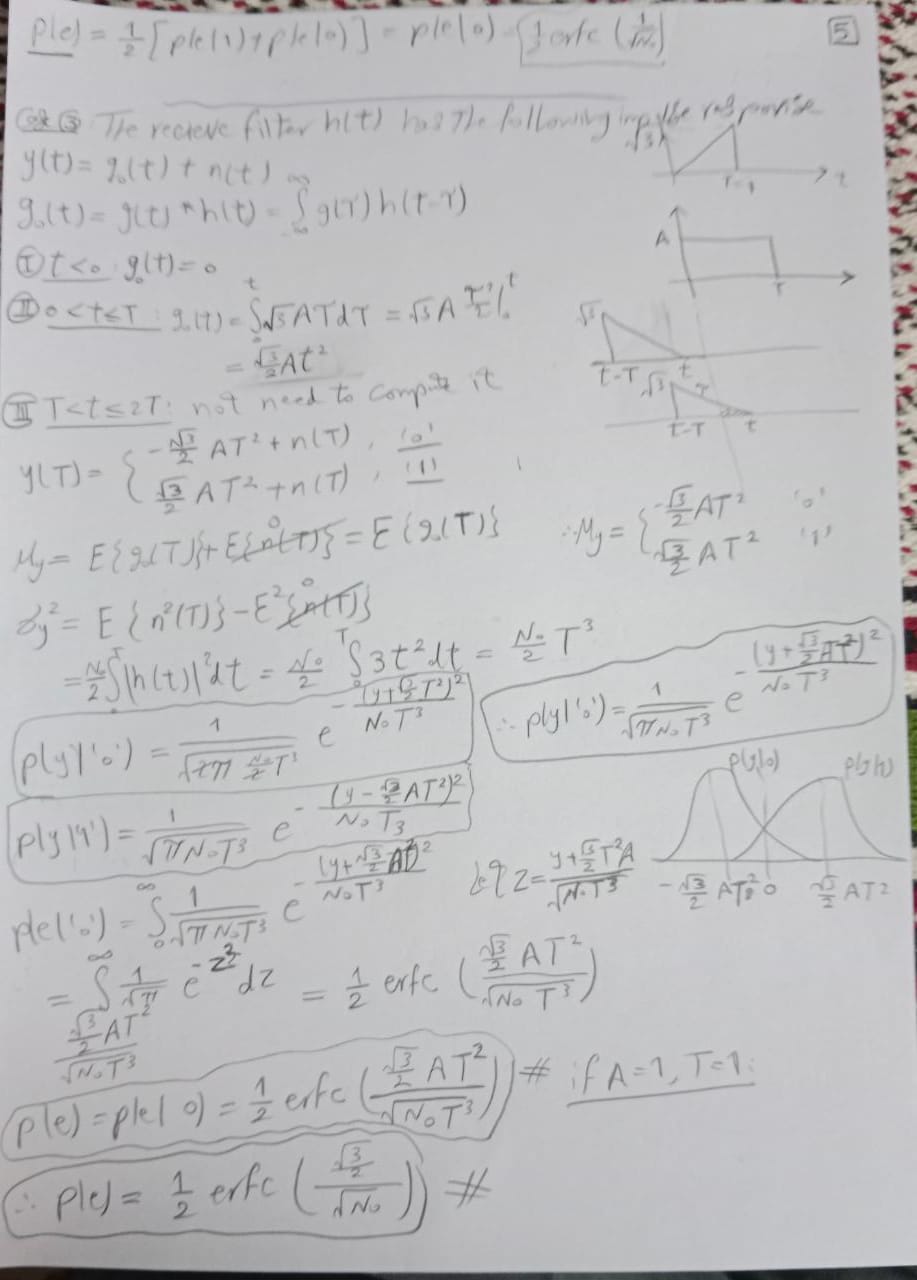 P(e) = 1/2 [p(e|1)+p(e|0)] = p(e|0) = 1/2 erfc (1/√N₀)
5
Case ③ The recieve filter h(t) has the following impulse response
√3
T=1
t
y(t) = g₀(t) + n(t)
g₀(t) = g(t) * h(t) = ∫ g(τ) h(t-τ)
A
T
Ⓘ t<0 g₀(t) = 0
Ⅱ 0<t≤T : g₀(t) = ∫₀ᵗ √3 Aτ dτ = √3 A τ²/2 |₀ᵗ
√3
t-T t
= √3/2 At²
Ⅲ T<t≤2T: not need to compute it
√3 T
t-T t
y(T) = { -√3/2 AT² + n(T), '0'
√3/2 AT² + n(T), '1'
My = E{g₀(T)} + E{n(T)} 0 = E{g₀(T)}
∴ My = { -√3/2 AT² '0'
√3/2 AT² '1'
σy² = E{n²(T)} - E²{n(T)} 0
= N₀/2 ∫|h(t)|²dt = N₀/2 ∫₀ᵀ 3t²dt = N₀/2 T³
p(y|'0') = 1/√(2π N₀/2 T³) e^-(y+√3/2 T²)²/N₀T³
∴ p(y|'0') = 1/√(πN₀T³) e^-(y+√3/2 AT²)²/N₀T³
p(y|'1') = 1/√(πN₀T³) e^-(y-√3/2 AT²)²/N₀T3
p(y|0) p(y|1)
-√3/2 AT² 0 √3/2 AT2
p(e|'0') = ∫₀^∞ 1/√(πN₀T³) e^-(y+√3/2 AT²)²/N₀T³
let Z = y+√3/2 T²A/√(N₀T³)
= ∫^∞ 1/√π e^-z² dz = 1/2 erfc (√3/2 AT²/√(N₀T³))
√3/2 AT²/√(N₀T³)
p(e) = p(e|0) = 1/2 erfc (√3/2 AT²/√(N₀T³)) # if A=1, T=1:
∴ p(e) = 1/2 erfc (√3/2/√N₀) #